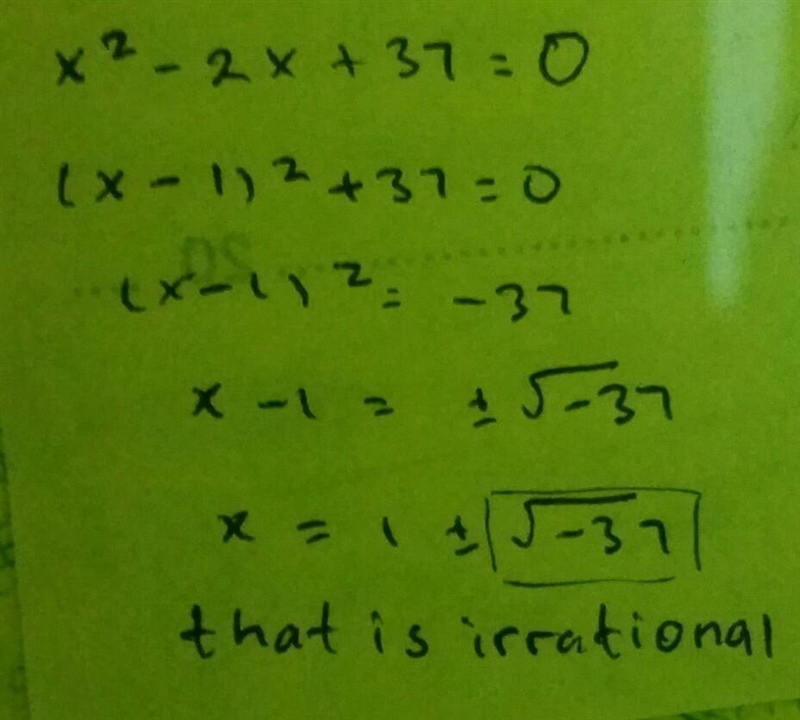 x² - 2x + 37 = 0
(x - 1)² + 37 = 0
(x - 1)² = -37
x - 1 = ± √-37
x = 1 ± √-37
that is irrational